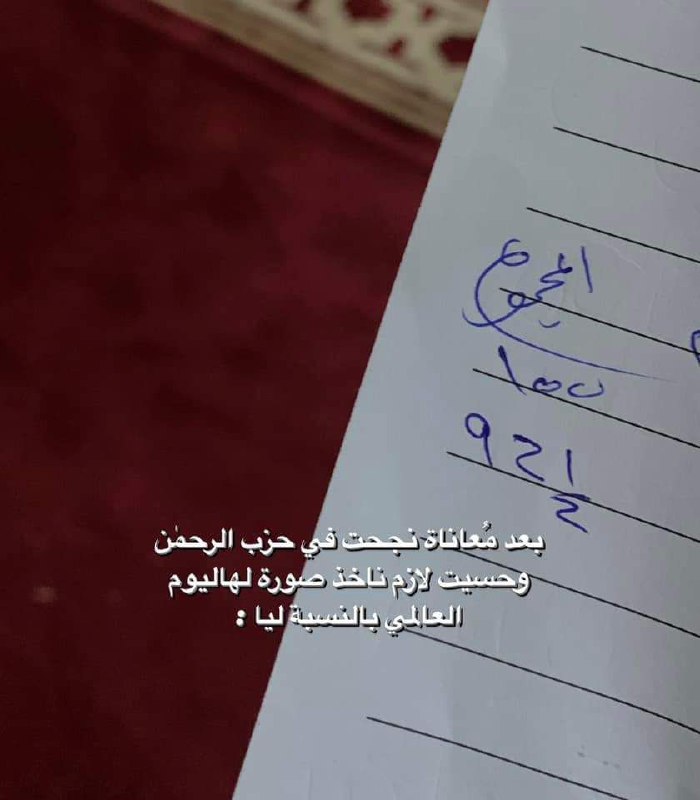 المجموع
100
92 1/2
بعد مُعاناة نجحت في حزب الرحمٰن
وحسيت لازم ناخذ صورة لهاليوم
العالمي بالنسبة ليا :